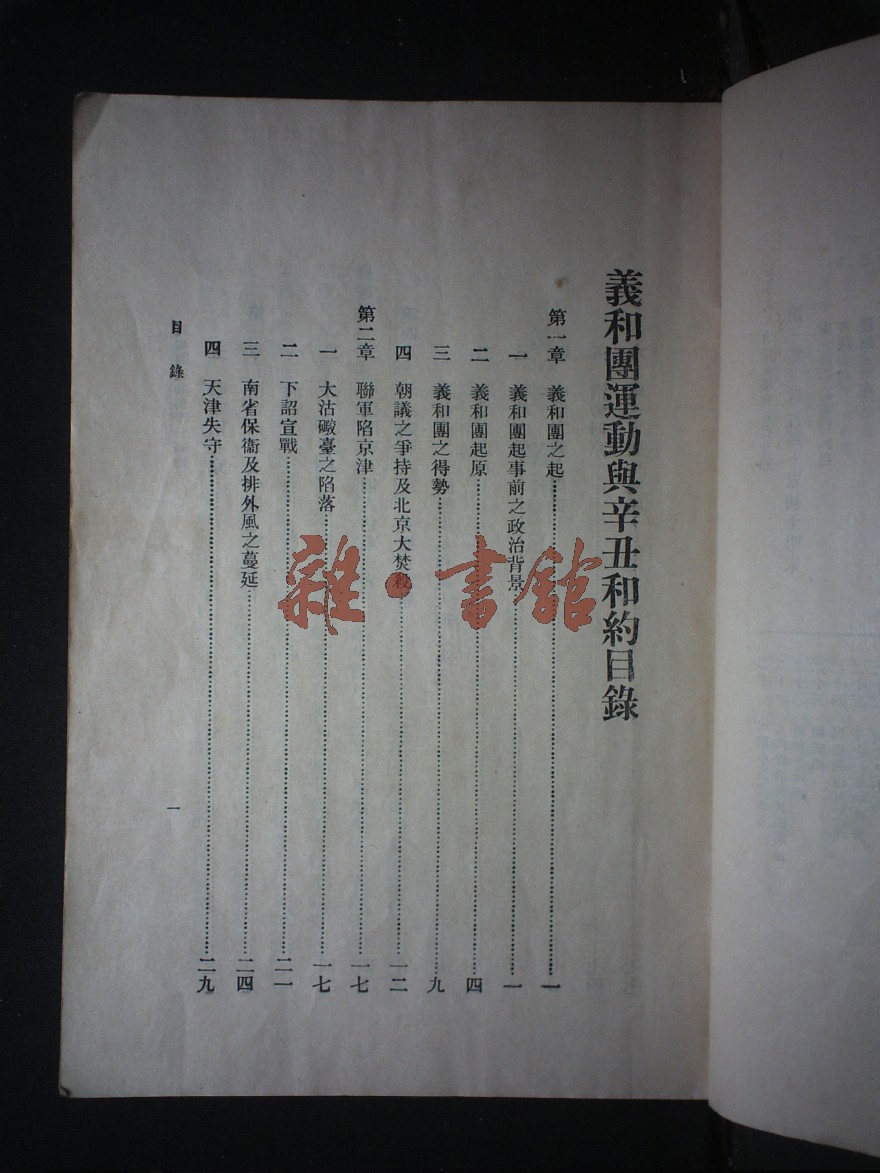 義和團運動與辛丑和約目錄
第一章 義和團之起……一
一 義和團起事前之政治背景……一
二 義和團起原……四
三 義和團之得勢……九
四 朝議之爭持及北京大焚殺……一二
第二章 聯軍陷京津……一七
一 大沽礮臺之陷落……一七
二 下詔宣戰……二一
三 南省保衞及排外風之蔓延……二四
四 天津失守……二九
目錄
一
雜·書館